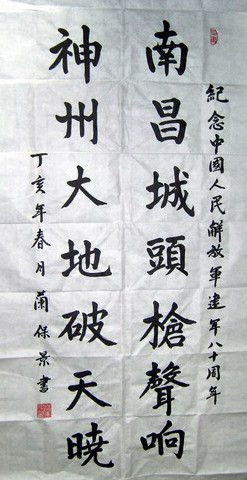 紀念中國人民解放軍建军八十周年
南昌城頭槍聲响
神州大地破天曉
丁亥年春月蘭保景書